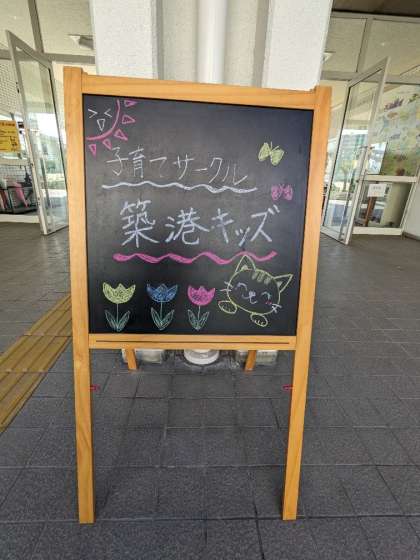 子育てサークル
築港キッズ